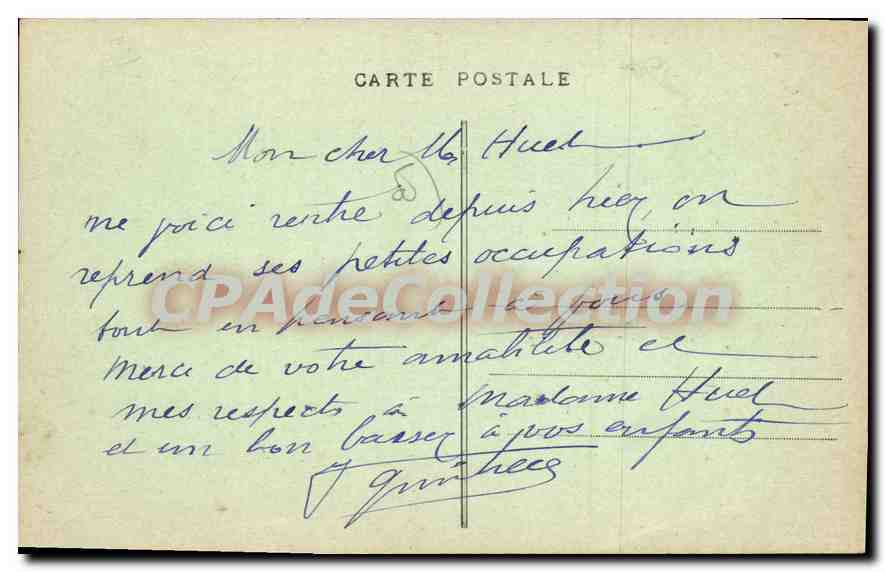 CARTE POSTALE
Mon cher Mr Huet
me voici rentré depuis hier, on
reprend ses petites occupations
tout en pensant à vous
Merci de votre amabilité et
mes respects à Madame Huet
et un bon baiser à vos enfants
CPAdeCollection.com